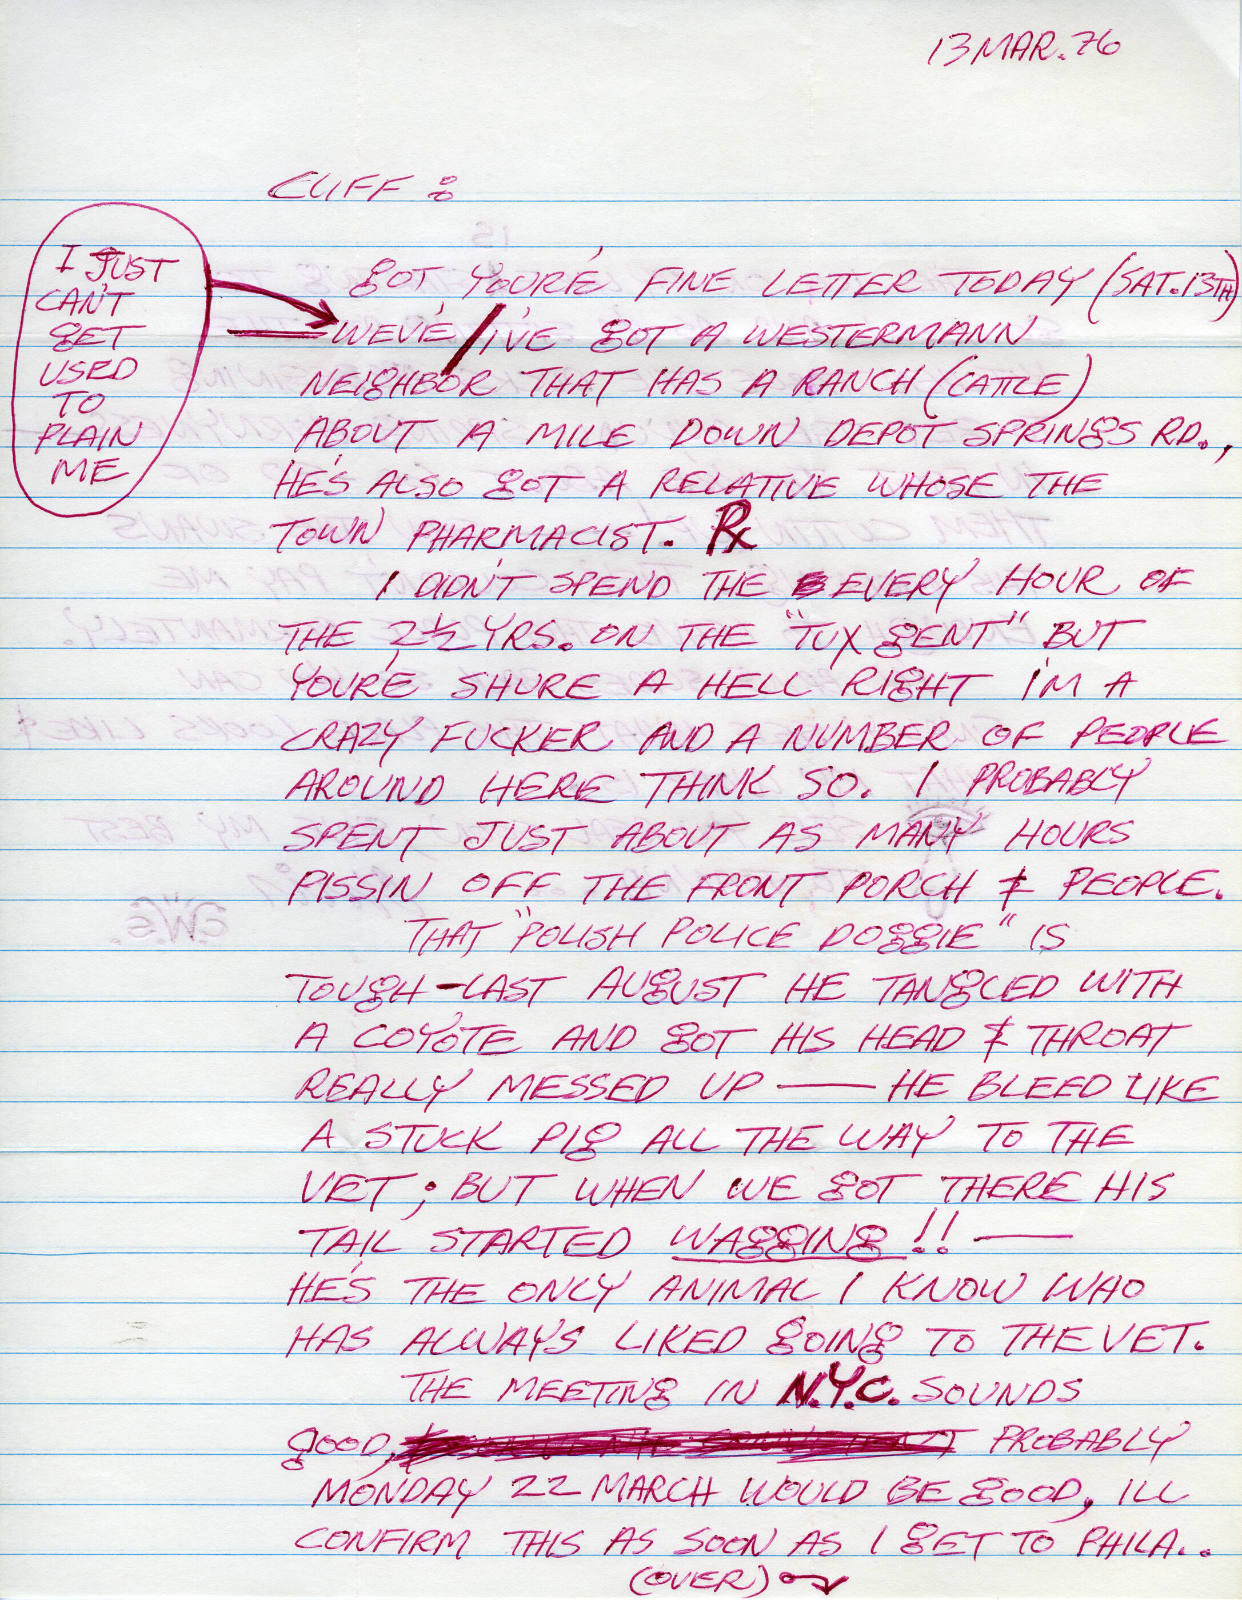 13 MAR. 76
CLIFF :
I JUST
CAN'T
GET
USED
TO
PLAIN
ME
GOT YOUR'E FINE LETTER TODAY (SAT. 13TH)
WEV'E/I'VE GOT A WESTERMANN
NEIGHBOR THAT HAS A RANCH (CATTLE)
ABOUT A MILE DOWN DEPOT SPRINGS RD.,
HE'S ALSO GOT A RELATIVE WHOSE THE
TOWN PHARMACIST. Rx
I DIDN'T SPEND THE EVERY HOUR OF
THE 2½ YRS. ON THE "TUX GENT" BUT
YOUR'E SHURE A HELL RIGHT I'M A
CRAZY FUCKER AND A NUMBER OF PEOPLE
AROUND HERE THINK SO. I PROBABLY
SPENT JUST ABOUT AS MANY HOURS
PISSIN OFF THE FRONT PORCH & PEOPLE.
THAT "POLISH POLICE DOGGIE" IS
TOUGH - LAST AUGUST HE TANGLED WITH
A COYOTE AND GOT HIS HEAD & THROAT
REALLY MESSED UP — HE BLEED LIKE
A STUCK PIG ALL THE WAY TO THE
VET; BUT WHEN WE GOT THERE HIS
TAIL STARTED WAGGING!! —
HE'S THE ONLY ANIMAL I KNOW WHO
HAS ALWAYS LIKED GOING TO THE VET.
THE MEETING IN N.Y.C. SOUNDS
GOOD, PROBABLY
MONDAY 22 MARCH WOULD BE GOOD, ILL
CONFIRM THIS AS SOON AS I GET TO PHILA..
(OVER)